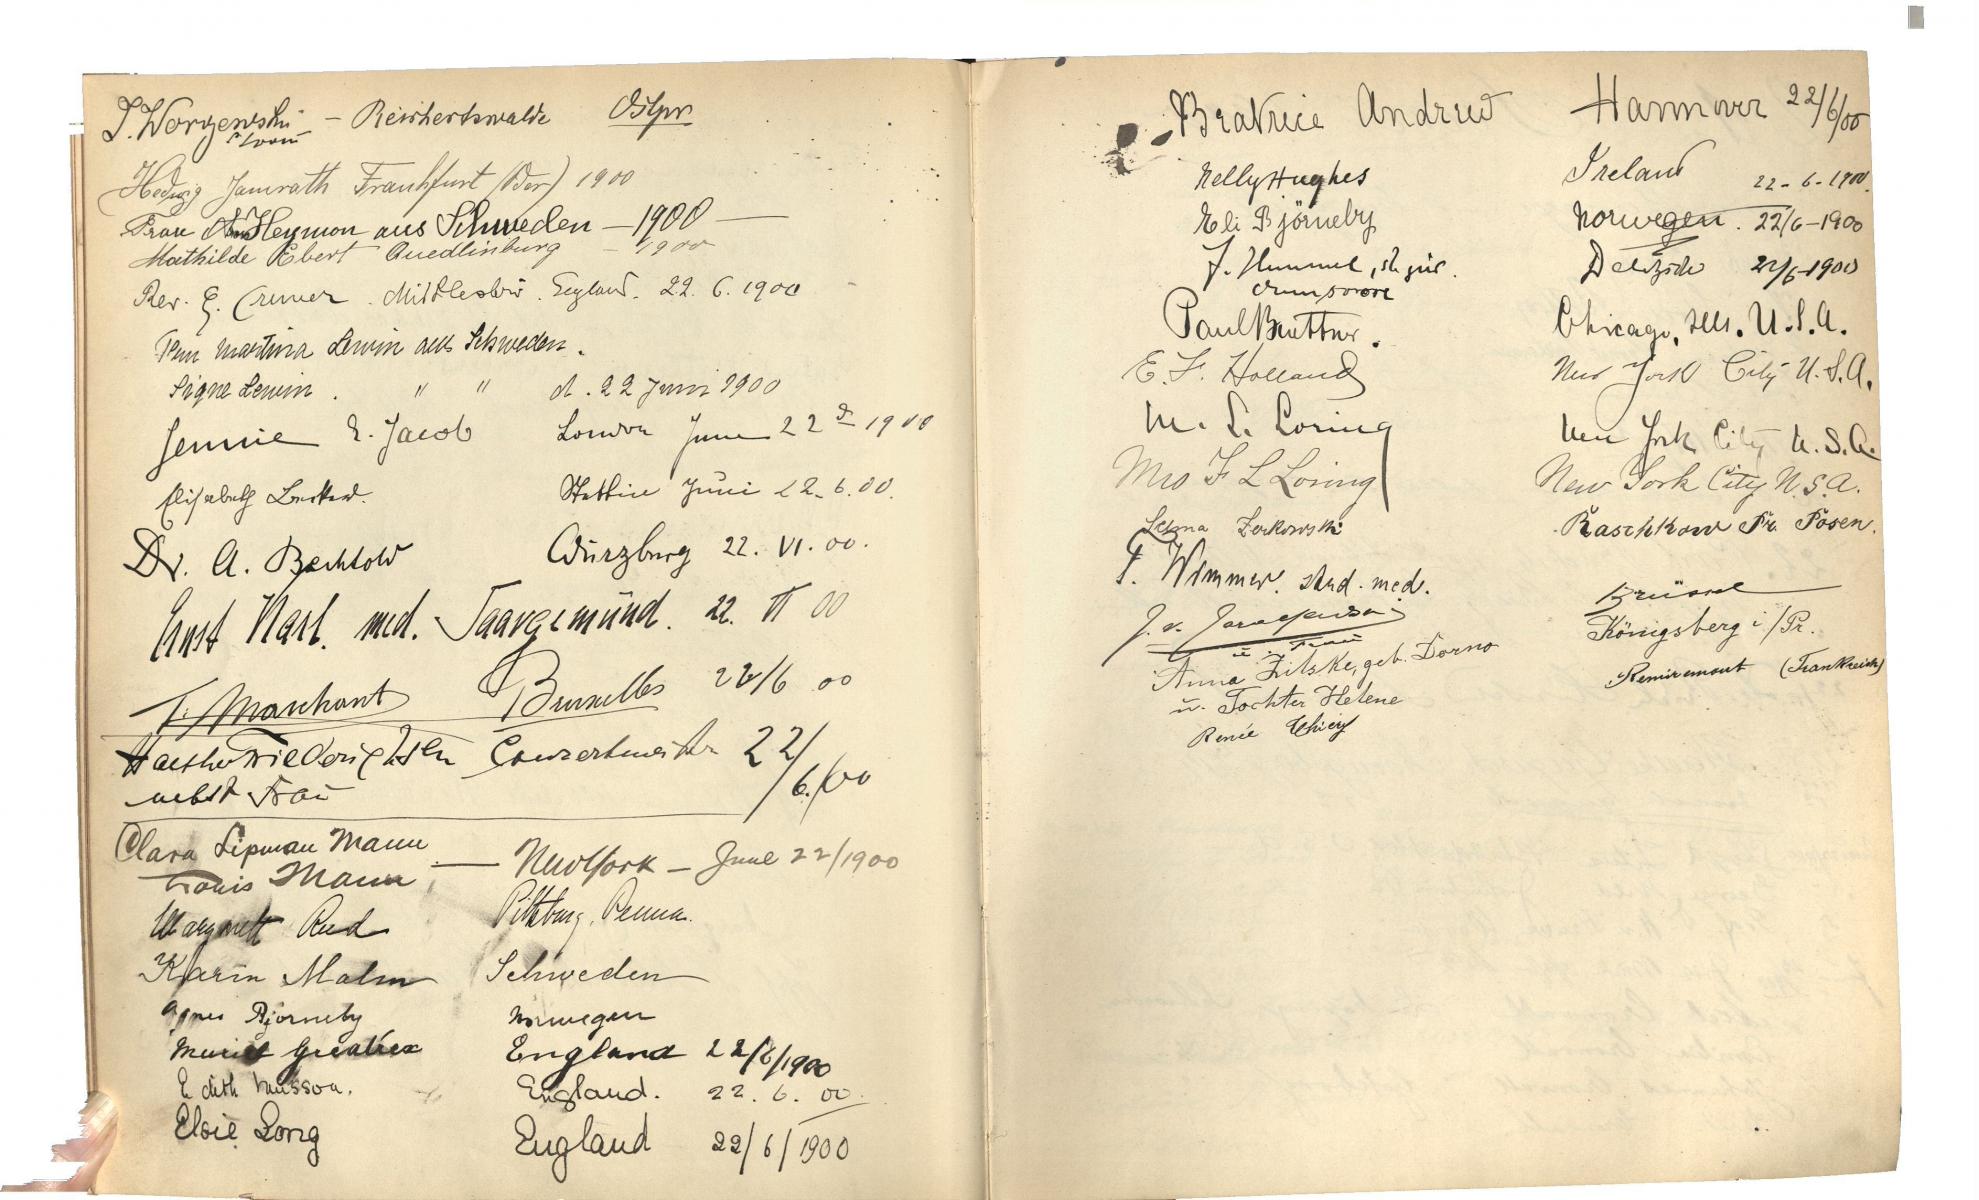 J. Worzewski – Reichertswalde Ostpr
Hedwig Jamrath Frankfurt (Oder) 1900
Frau Heymon aus Schweden – 1900 —
Mathilde Ebert Quedlinburg – 1900
Rev. E. Cremer. England. 22. 6. 1900
Martina Lewin aus Schweden.
Signe Lewin. " " d. 22 Juni 1900
Jennie E. Jacob London June 22d 1900
Elisabeth Stettin Juni 22. 6. 00.
Dr. A. Bechtold Würzburg 22. VI. 00.
Ernst med. Saargemünd. 22. VI 00
F. Marchant Bruxelles 22/6 00
Concertmeister 22/6./00
nebst Frau
Clara Lipman Mann
Louis Mann — New York – June 22/1900
Margrett Reed Pittsburg, Penna.
Karin Malm Schweden
Agnes Bjorneby Norwegen
Muriel Greatrex England 22/6/1900
Edith Musson. England. 22. 6. 00.
Elsie Long England 22/6/1900
Beatrice Andrew Hannover 22/6/00
Nelly Hughes Ireland 22-6-1900.
Eli Björneby Norwegen. 22/6-1900
J. Hummel, 22/6-1900
Paul Buttner. Chicago, Ills. U.S.A.
E. F. Holland New York City U.S.A.
M. L. Loring New York City U.S.A.
Mrs F L Loring New York City U.S.A.
Selma Zerkowski Raschkow Pr. Posen.
F. Wimmer stud. med. Brüssel
u. Frau
Anna Zilske, geb. Dorno Königsberg i/Pr.
u. Tochter Helene
Renée Thiery Remiremont (Frankreich)